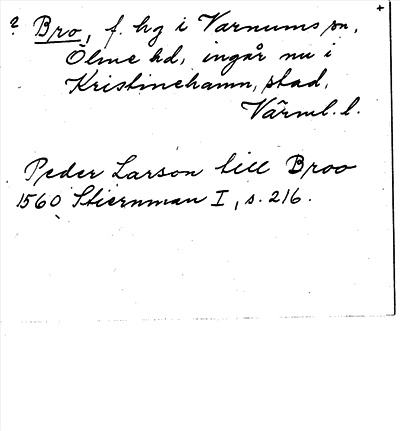 ? Bro, f. hg i Varnums sn,
Ölme hd, ingår nu i
Kristinehamn, stad,
Värml. l.
Peder Larson till Broo
1560 Stiernman I, s. 216.